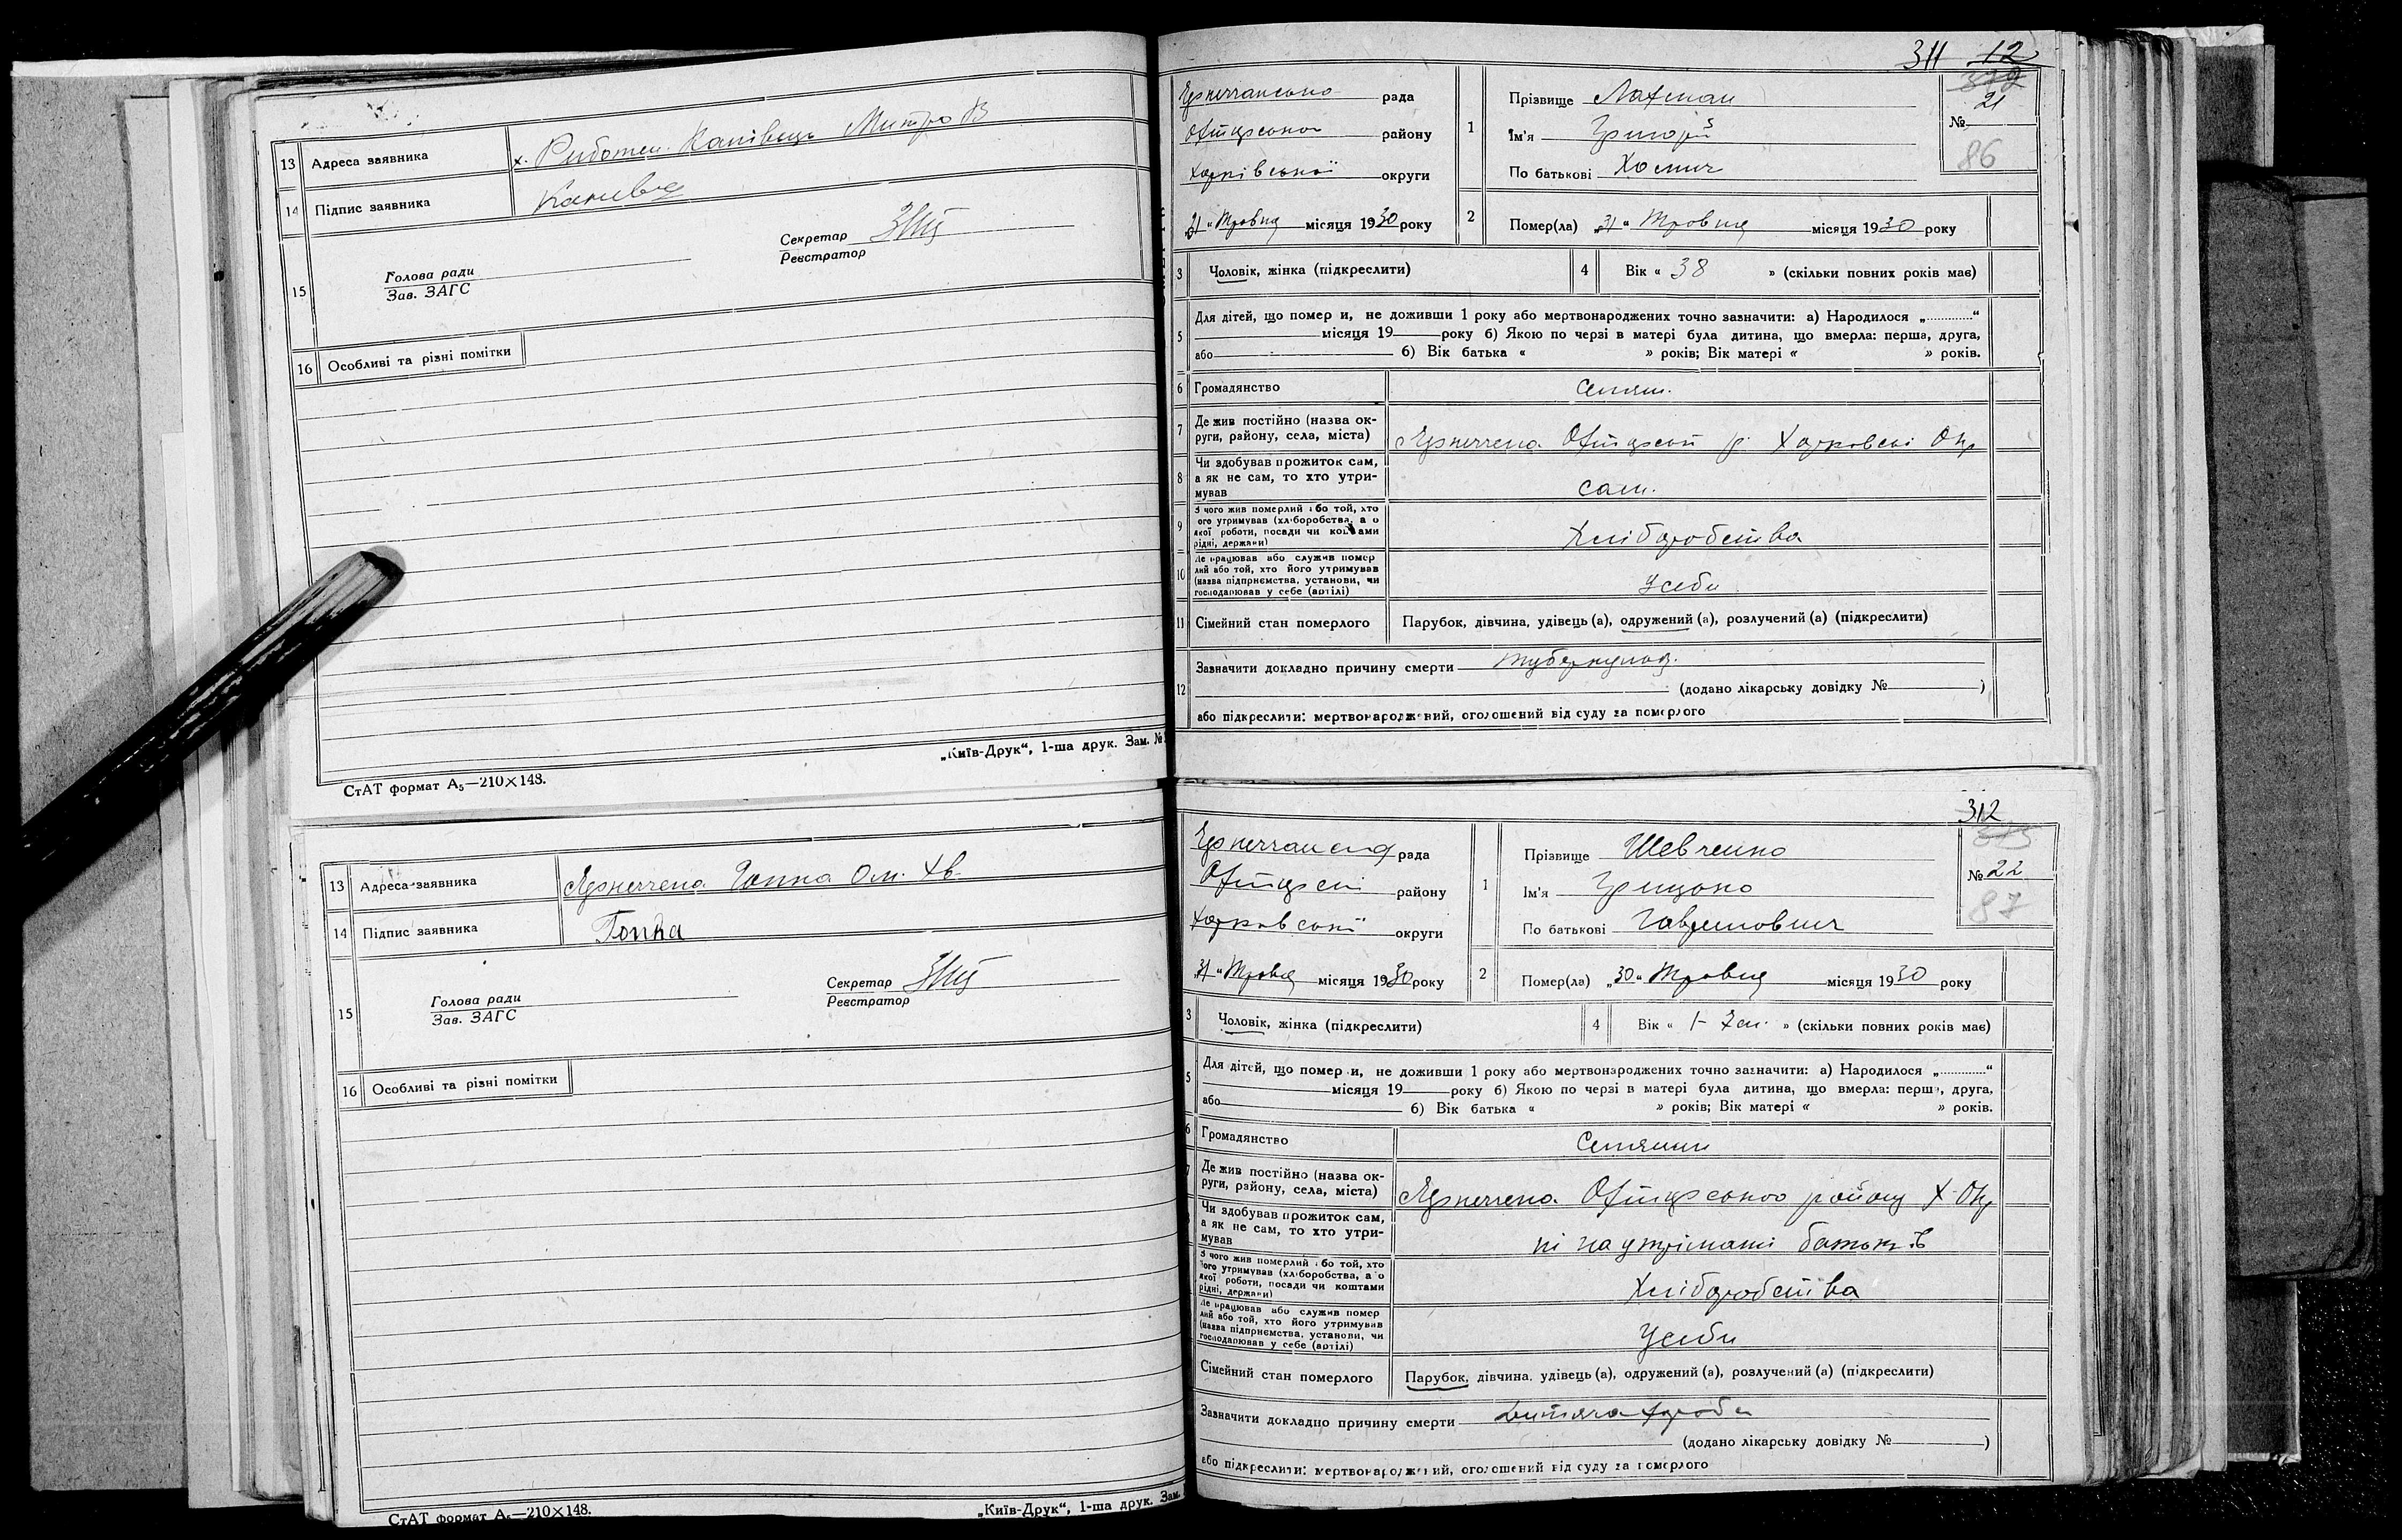 13 Адреса заявника х. Работен. Канівець Митро В
14 Підпис заявника Канивец
Секретар
Реєстратор
15 Голова ради
Зав. ЗАГС
16 Особливі та різні помітки
„Київ-Друк“, 1-ша друк. Зам. №
СтАТ формат А₅—210×148.
13 Адреса заявника
14 Підпис заявника Гопка
Секретар
Реєстратор
15 Голова ради
Зав. ЗАГС
16 Особливі та різні помітки
СтАТ формат А₅—210×148.
„Київ-Друк“, 1-ша друк. Зам.
311 12
рада
району
Харківської округи
„31“ Травня місяця 1930 року
1 Прізвище Лахман
Ім'я Григорій
По батькові Хомич
21
№
86
2 Помер(ла) „31“ Травня місяця 1930 року
3 Чоловік, жінка (підкреслити)
4 Вік « 38 » (скільки повних років має)
5 Для дітей, що померли, не доживши 1 року або мертвонароджених точно зазначити: а) Народилося „............“
місяця 19 року б) Якою по черзі в матері була дитина, що вмерла: перша, друга,
або б) Вік батька « » років; Вік матері « » років.
6 Громадянство Селян.
7 Де жив постійно (назва округи, району, села, міста)
8 Чи здобував прожиток сам, а як не сам, то хто утримував сам.
9 З чого жив померлий або той, хто його утримував (хліборобства, або якої роботи, посади чи коштами рідні, держави) Хліборобства
10 Де працював або служив померлий або той, хто його утримував (назва підприємства, установи, чи господарював у себе (артілі) Усеби
11 Сімейний стан померлого Парубок, дівчина, удівець (а), одружений (а), розлучений (а) (підкреслити)
12 Зазначити докладно причину смерти туберкульоз.
(додано лікарську довідку № )
або підкреслити: мертвонароджений, оголошений від суду за померлого
312
рада
району
Харковської округи
„31“ Травня місяця 1930 року
1 Прізвище Шевченко
Ім'я Грицько
По батькові Гаврилович
№ 22
87
2 Помер(ла) „30“ Травня місяця 1930 року
3 Чоловік, жінка (підкреслити)
4 Вік « » (скільки повних років має)
5 Для дітей, що померли, не доживши 1 року або мертвонароджених точно зазначити: а) Народилося „............“
місяця 19 року б) Якою по черзі в матері була дитина, що вмерла: перша, друга,
або б) Вік батька « » років; Вік матері « » років.
6 Громадянство Селянин
7 Де жив постійно (назва округи, району, села, міста) району Х Окр
Чи здобував прожиток сам, а як не сам, то хто утримував ні на утрімані батьків
З чого жив померлий або той, хто його утримував (хліборобства, або якої роботи, посади чи коштами рідні, держави) Хліборобства
Де працював або служив померлий або той, хто його утримував (назва підприємства, установи, чи господарював у себе (артілі) Усеби
Сімейний стан померлого Парубок, дівчина, удівець (а), одружений (а), розлучений (а) (підкреслити)
Зазначити докладно причину смерти Дитяча хароба
(додано лікарську довідку № )
або підкреслити: мертвонароджений, оголошений від суду за померлого